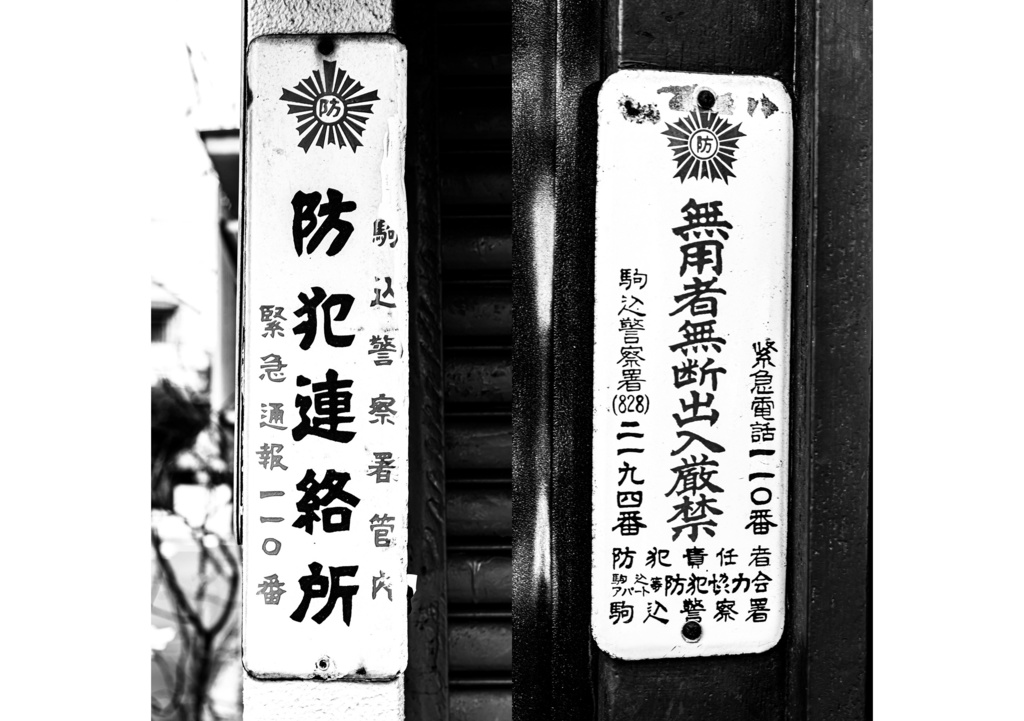 防
駒込警察署管内
防犯連絡所
緊急通報一一〇番
防
緊急電話一一〇番
無用者無断出入厳禁
駒込警察署(828)二一九四番
防犯責任者
駒込アパート等防犯協力会
駒込警察署